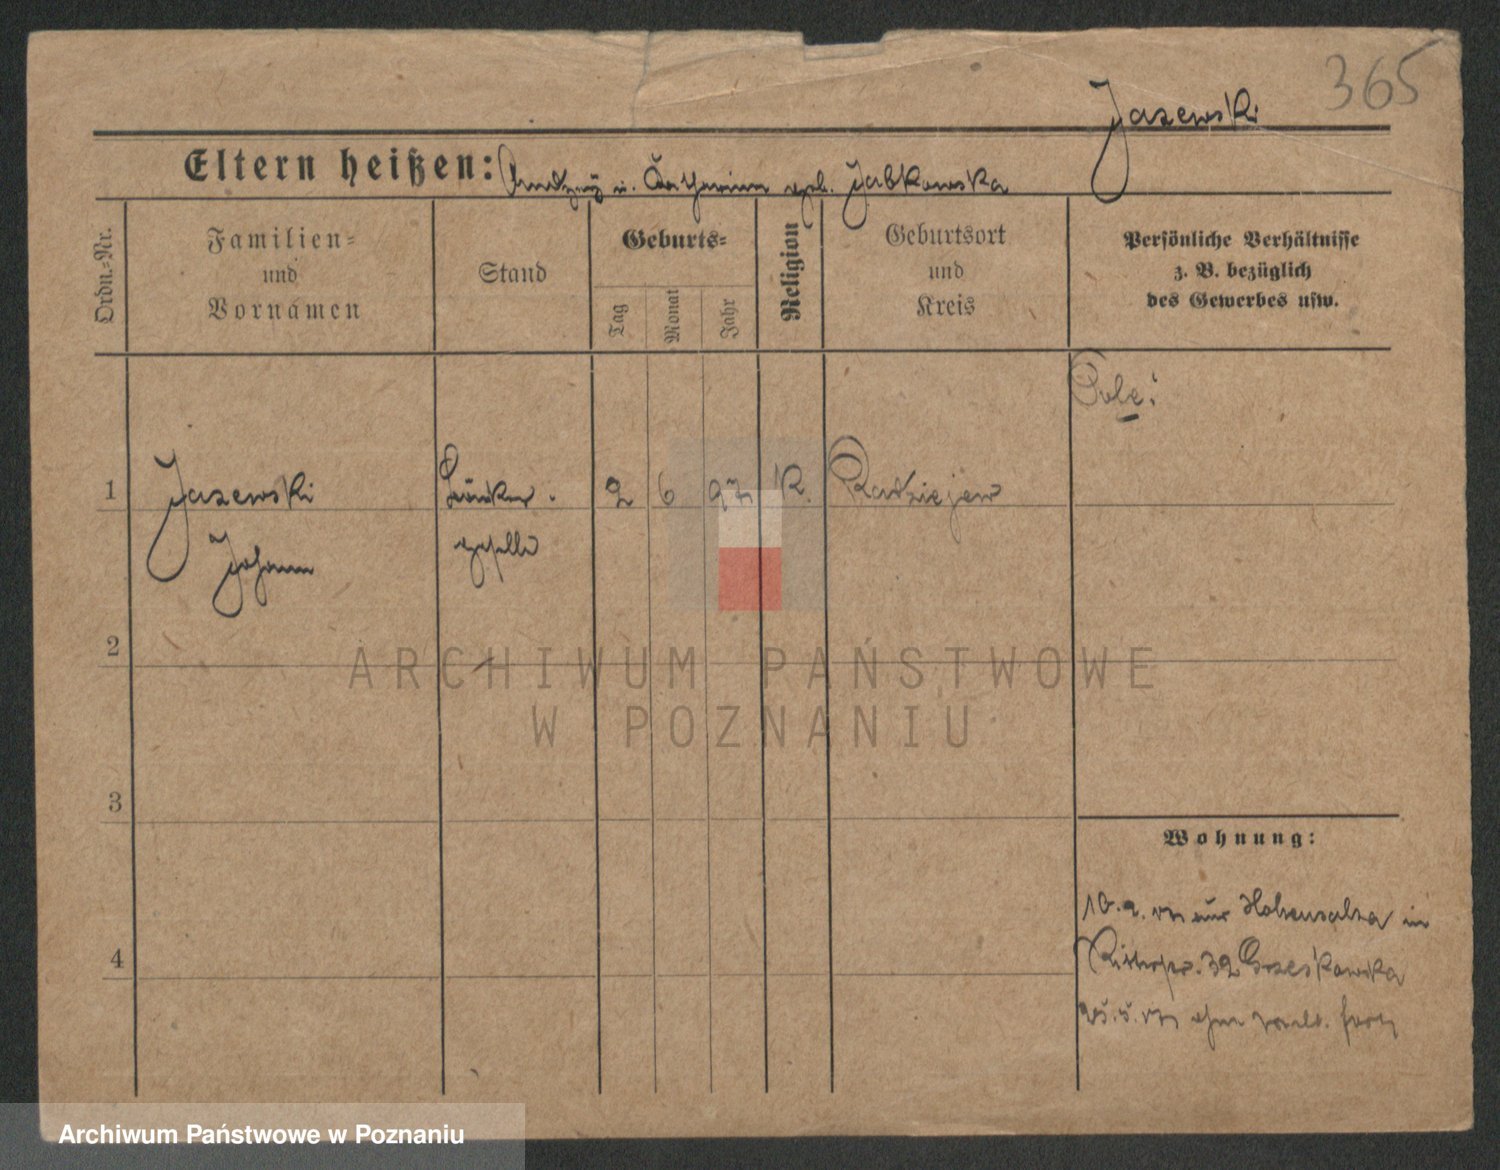 365
Jazewski
Eltern heißen: Andrzej u. Katharina geb. Jabkowska
Ordn.-Nr.
Familien-
und
Vornamen
Stand
Geburts-
Tag
Monat
Jahr
Religion
Geburtsort
und
Kreis
Persönliche Verhältnisse
z. B. bezüglich
des Gewerbes usw.
Pole!
1
Jazewski
Johann
geselle
2 6 97 K. Radziejew
2
3
4
Wohnung:
aus Hohensalza in
32 Grzeskowska
25.5. ohne
ARCHIWUM PAŃSTWOWE
W POZNANIU
Archiwum Państwowe w Poznaniu